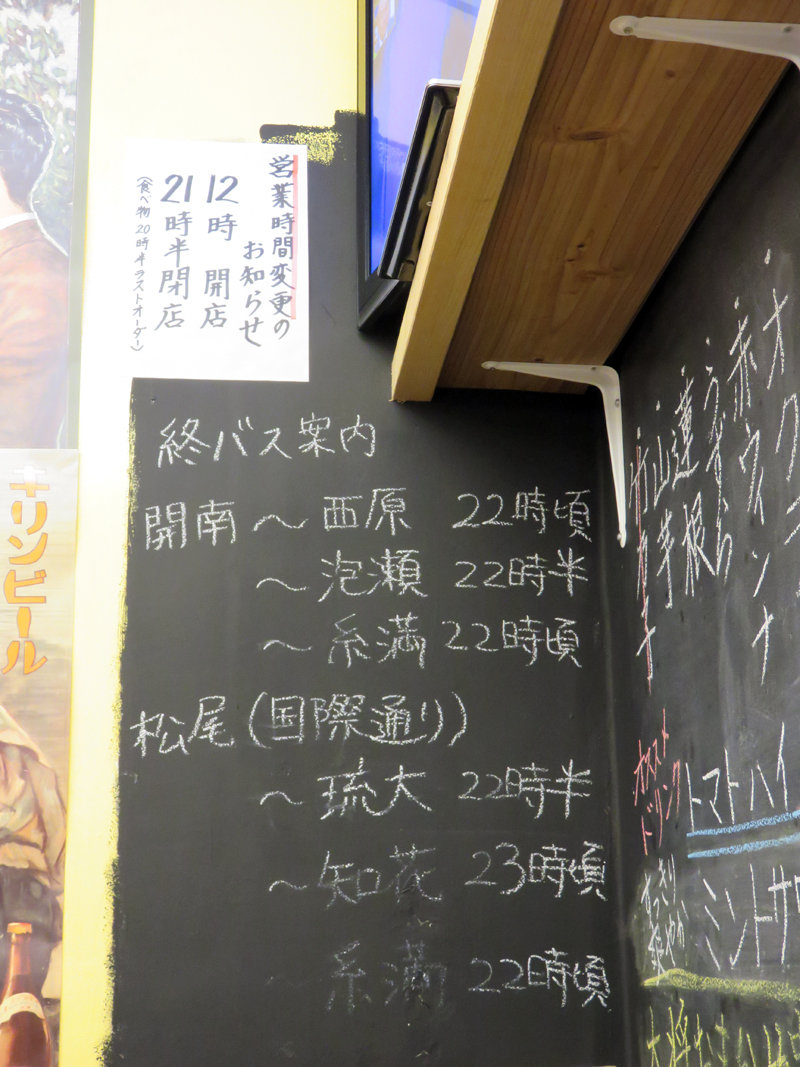 営業時間変更の
お知らせ
12時 開店
21時半閉店
(食べ物20時半ラストオーダー)
終バス案内
開南〜西原 22時頃
〜泡瀬 22時半
〜糸満 22時頃
松尾(国際通り)
〜琉大 22時半
〜知花 23時頃
糸満 22時頃
キリンビール
オク
赤ウインナ
うずら
蓮根
山芋
オススト
ドリンク
トマトハイ
ミントサワ